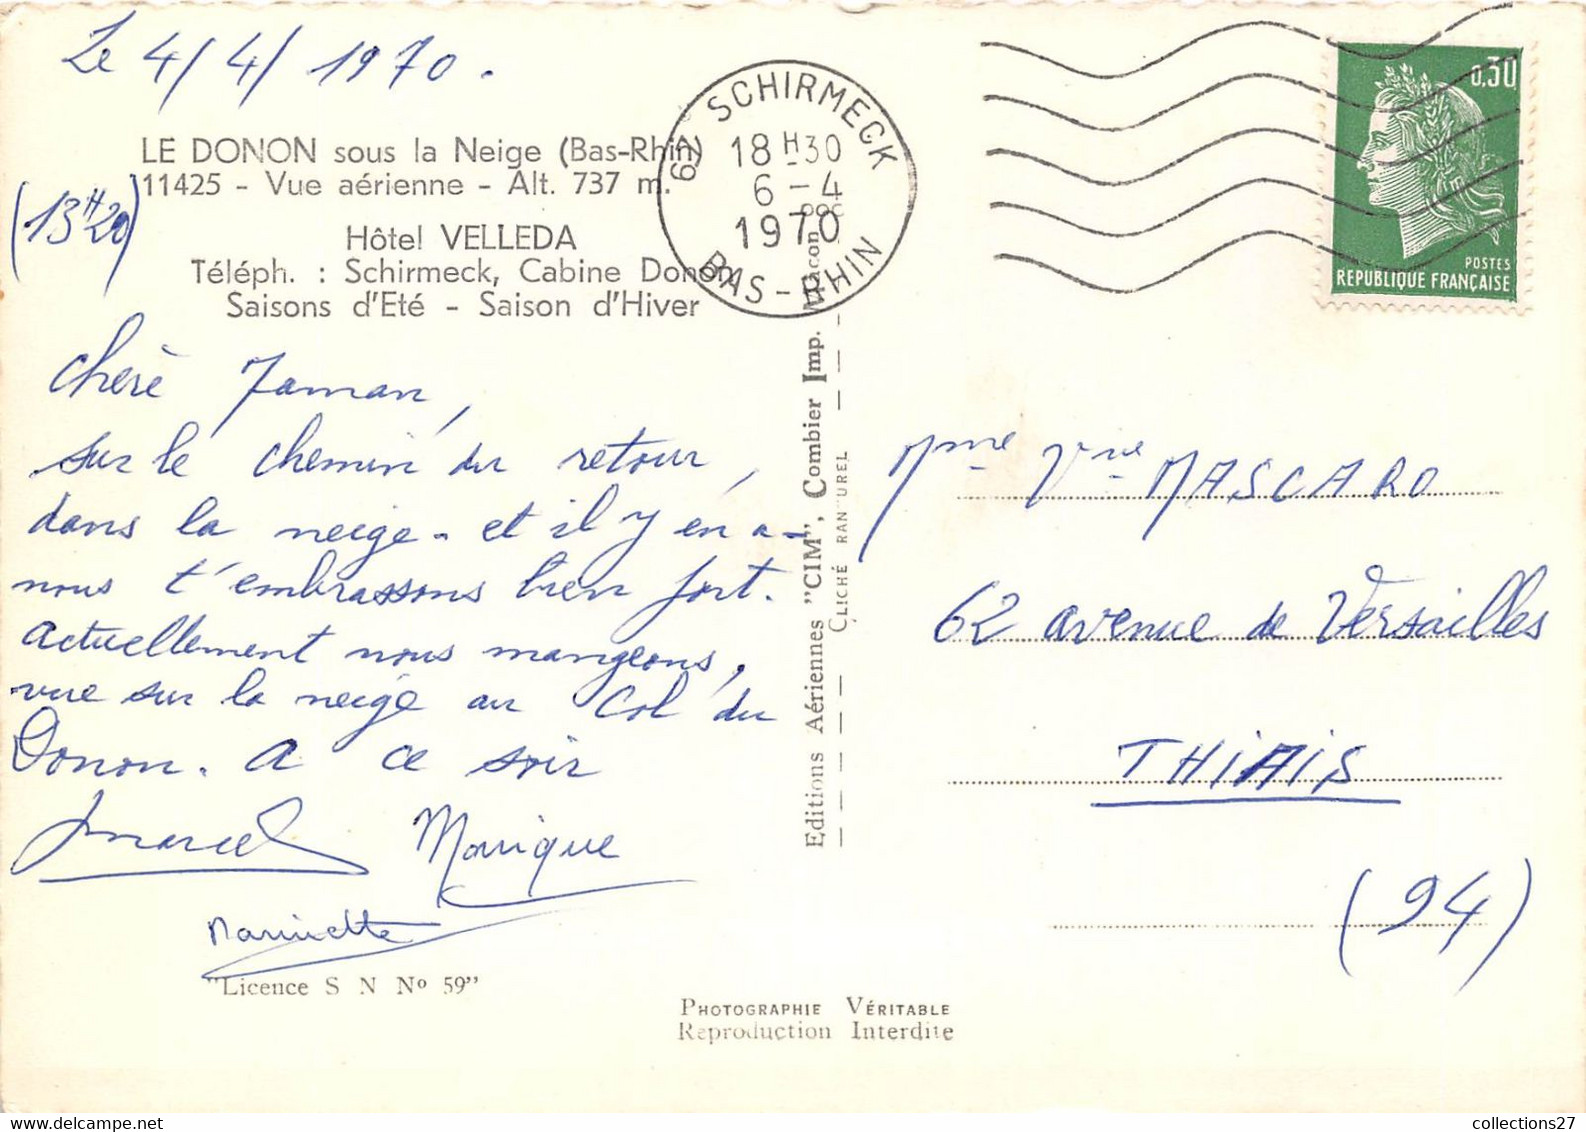 Le 4/4/1970.
LE DONON sous la Neige (Bas-Rhin)
11425 - Vue aérienne - Alt. 737 m.
(13H20)
Hôtel VELLEDA
Téléph. : Schirmeck, Cabine Donon
Saisons d'Eté - Saison d'Hiver
chère Maman,
sur le chemin du retour,
dans la neige - et il y en a -
nous t'embrassons bien fort.
actuellement nous mangeons,
vue sur la neige au Col du
Donon. A ce soir
Marcel Monique
"Licence S N No 59"
67 SCHIRMECK
18H30
6-4
1970
BAS-RHIN
0,30
POSTES
REPUBLIQUE FRANÇAISE
Editions Aériennes "CIM", Combier Imp. Macon
CLICHÉ RAY
Mme Vve MASCARO
62 avenue de Versailles
THIAIS
(94)
PHOTOGRAPHIE VÉRITABLE
Reproduction Interdite
collections27